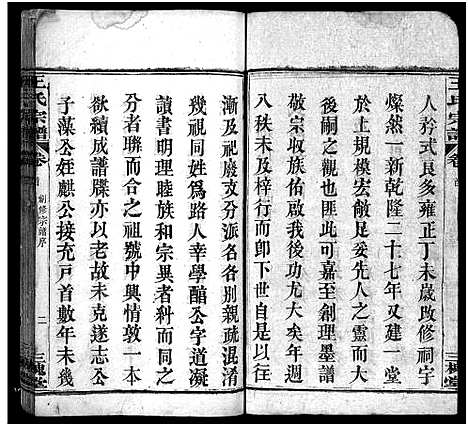 人矜式良多雍正丁未歲改修祠宇
燦然一新乾隆二十七年又建一堂
於左規模宏敞足妥先人之靈而大
後嗣之觀也匪此可嘉至創理墨譜
敬宗收族佑啟我後以篤親親歲大
八秩未及梓行而卽下世自兹以後
漸及祀廢支分派名各別親疏混淆
幾視同姓爲路人幸學醅公字道凝
讀書明理睦族和宗異者糾而同之
分者聯而合之祖號中興情敦一本
欲續成譜牒亦以老故未克遂志公
子藻公姪麒公接充戸首數年未幾
王氏宗譜
卷首
創修宗譜序
二
三槐堂
王氏宗譜
卷首
三槐堂